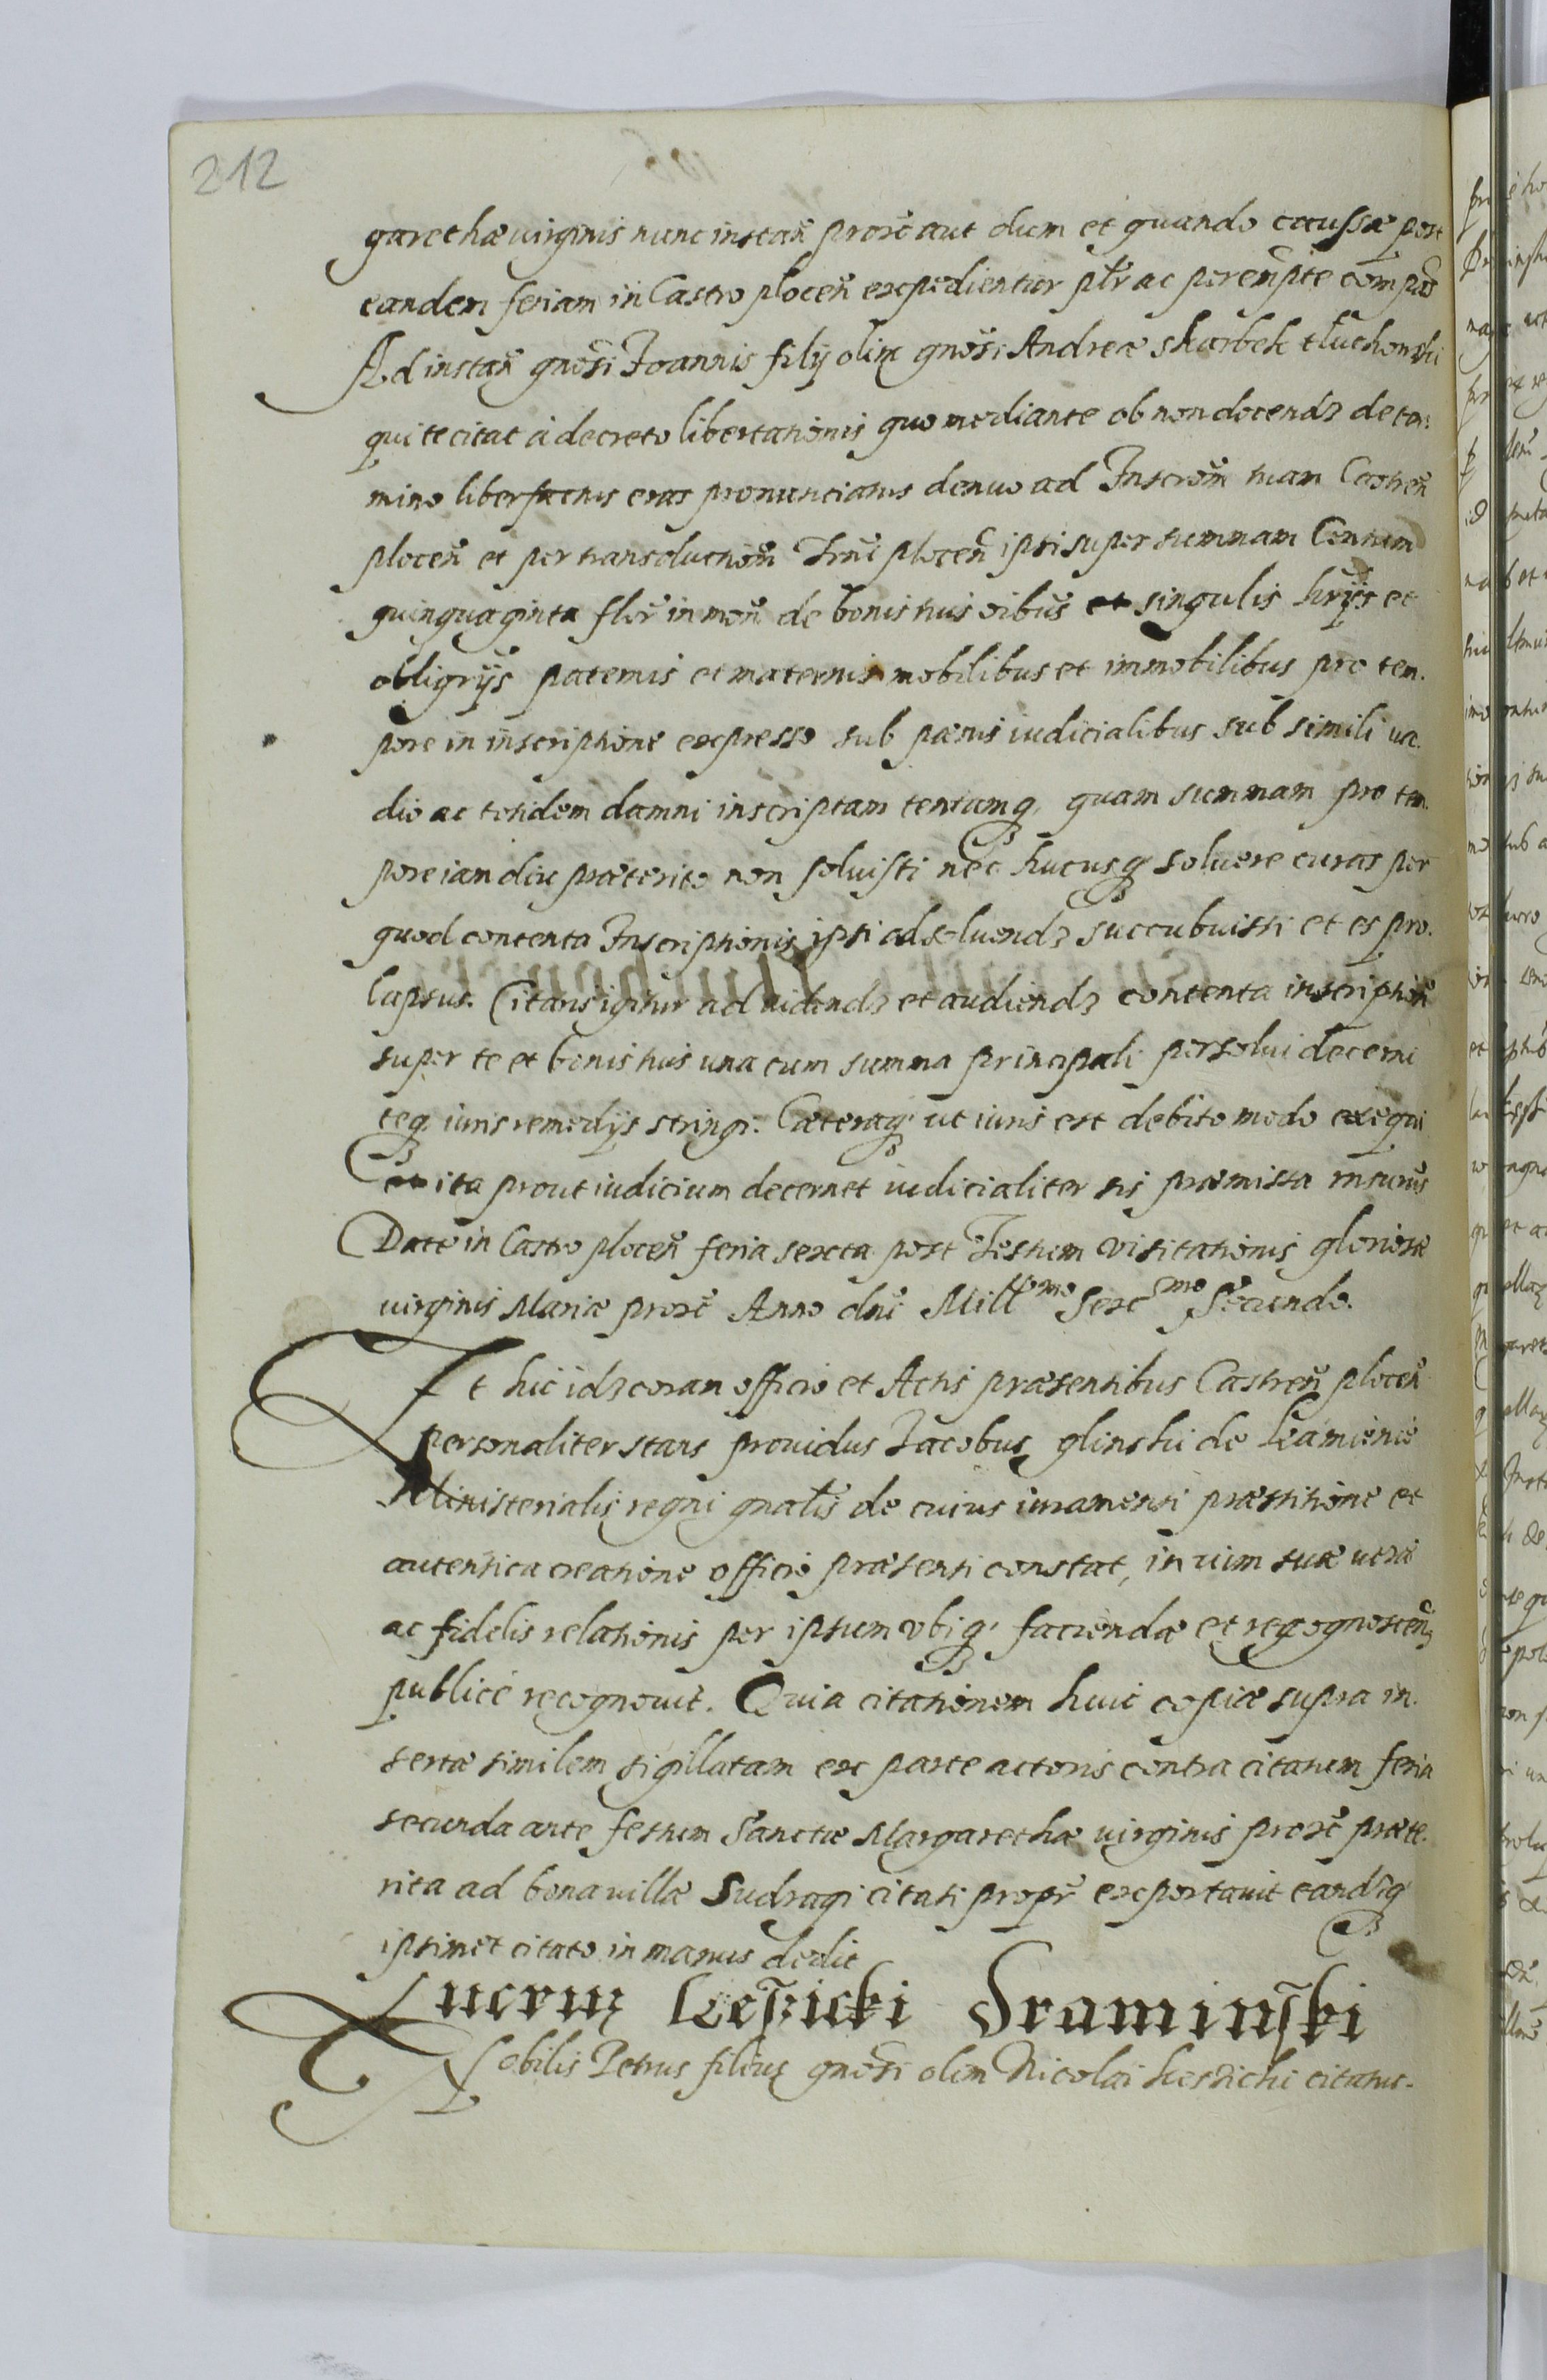 212
garethæ virginis nunc instan̄ proxē aut dum et quando caussæ post
eandem feriam in Castro plocen̄ expedientur ptr̄ ac perem̄pte compās
Ad instan̄ gnōsi Joannis filij olim gnōsi Andreæ skarbek tłuchowski
qui te citat à decreto libertationis quo mediante ob non docendȝ de ter:
mino liber factus eras pronunciatus denuo ad Inscrōm tuam Castren̄
plocen̄ et per transolutiōm Trnī plocen̄ ipsi super summam Centum
quinquaginta flor̄ in mon̄ de bonis tuis oībus et singulis hrījs et
obligrijs paternis et maternis mobilibus et immobilibus pro tem.
pore in inscriptione expresso sub pænis iudicialibus sub simili va.
dio ac totidem damni inscriptam tentamqȝ quam summam pro tem.
pore iam diu præterito non soluisti nec hucusqȝ soluere curas per
quod contenta Inscriptionis ipsi ad soluendȝ succubuisti et es pro.
lapsus. Citaris igitur ad uidendȝ et audiendȝ contenta inscriptiōn
super te et bonis tuis una cum summa principali persolui decerni
teqȝ iuris remedijs stringi. Cæteraqȝ ut iuris est debito modo exequi
et ita prout iudicium decernet iudicialiter sis præmissa rnsurus
Datē in Castro plocen̄ feria sexta post Festum Visitationis gloriosæ
virginis Mariæ proxē Anno dnī Mill͞mo Sexc͞mo Secundo.
Et hic idȝ coram officio et Actis præsentibus Castren̄ plocen̄
personaliter stans prouidus Jacobus glinski de Kamienie
Ministerialis regni gnalīs de cuius iuramenti præstitione et
autentica creatione officio præsenti constat, in uim suæ veræ
ac fidelis relationis per ipsum vbiqȝ faciendæ et recognoscen̄
publicè recognouit. Quia citationem huic copiæ supra in.
sertæ similem sigillatam ex parte actoris contra citatum feria
secunda ante festum Sanctæ Margarethæ virginis proxē præte.
rita ad bona villæ Sudragi citati propr̄ exportauit eandēqȝ
ipsimet citato in manus dedit
Lucrum Kesicki Sraminski
Nobilis Petrus filius gnōsi olim Nicolai kesicki citatus.